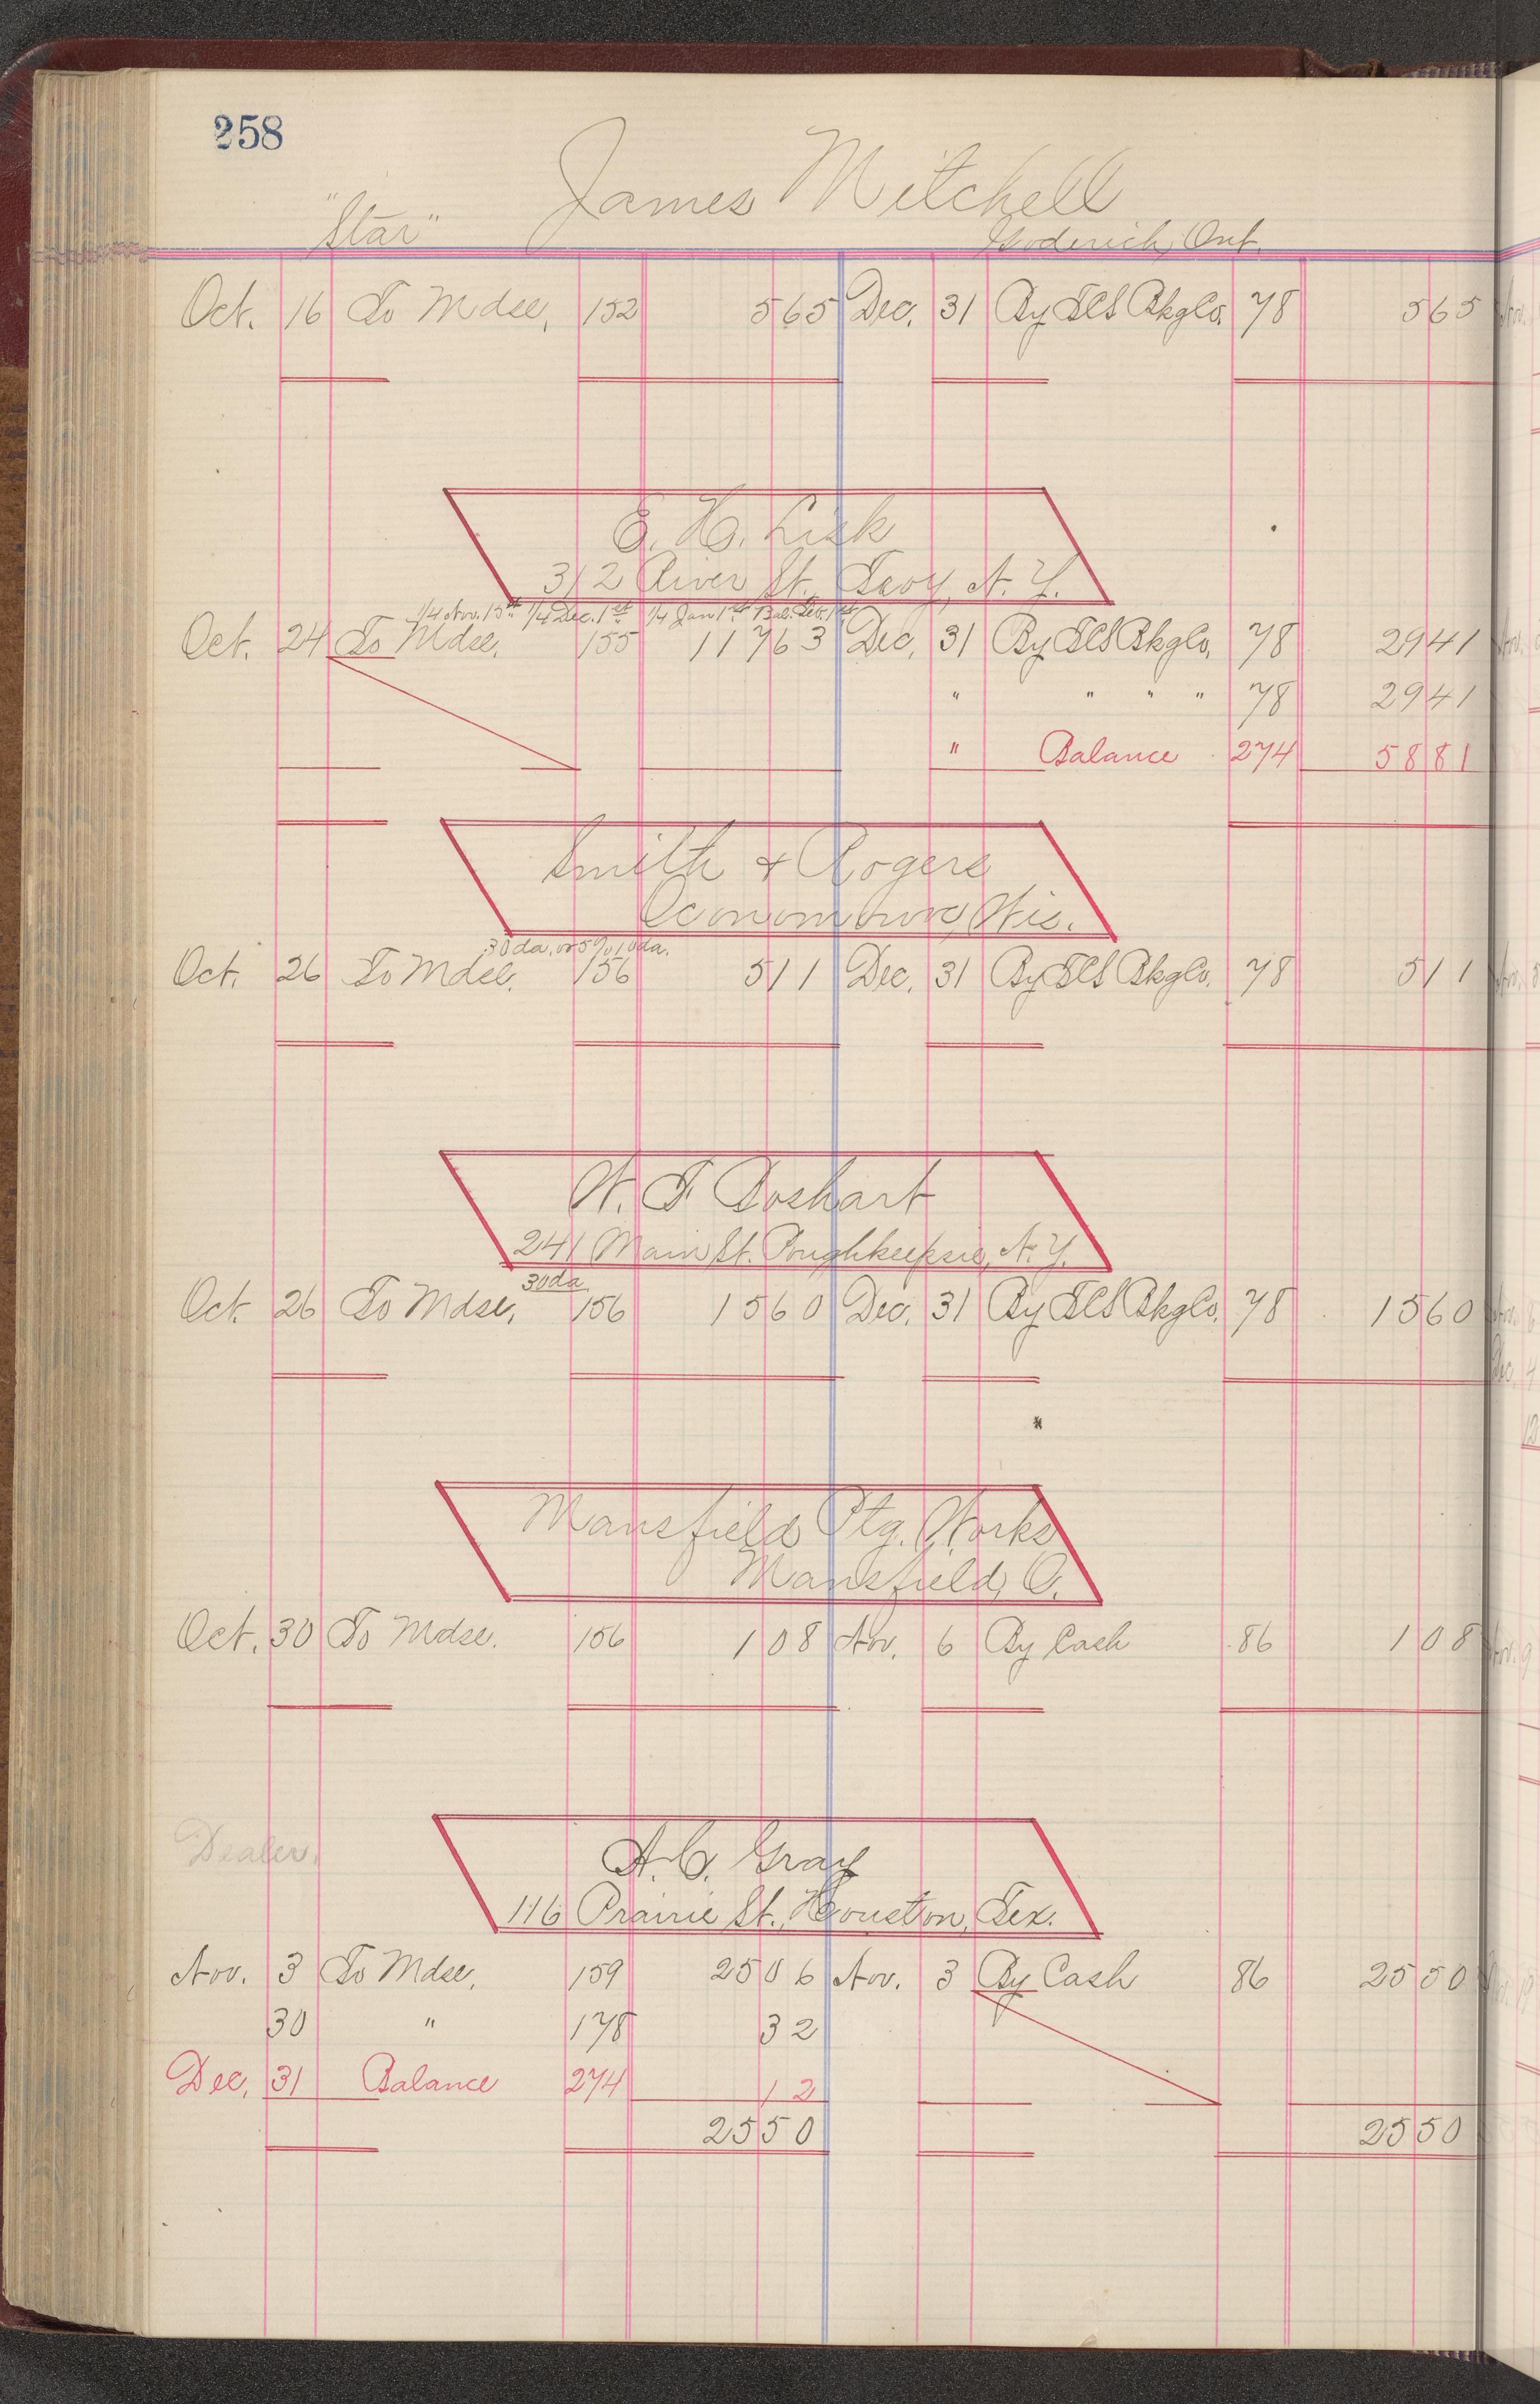 258
James Mitchell
"Star" Goderich, Ont.
Oct. 16 To Mdse, 152 5 65 Dec. 31 By Bkg Co. 78 5 65
E. H. Lisk
312 River St., Troy, N. Y.
1/4 Nov. 15th 1/4 Dec. 1st 1/4 Jan 1st Bal. Feb. 1st
Oct. 24 To Mdse, 155 117 63 Dec, 31 By Bkg Co, 78 29 41
" " " " 78 29 41
" Balance 274 58 81
Smith & Rogers
Wis.
30 da. or 5% 10 da.
Oct. 26 To Mdse. 156 5 11 Dec, 31 By Bkg Co. 78 5 11
W. F. Boshart
241 Main St. Poughkeepsie, N. Y.
30 da.
Oct. 26 To Mdse, 156 15 60 Dec, 31 By Bkg Co. 78 15 60
Mansfield Ptg. Works
Mansfield, O.
Oct. 30 To Mdse. 156 1 08 Nov. 6 By Cash 86 1 08
Dealer.
A. C. Gray
116 Prairie St., Houston, Tex.
Nov. 3 To Mdse, 159 25 06 Nov. 3 By Cash 86 25 50
30 " 178 32
Dec, 31 Balance 274 12
25 50 25 50